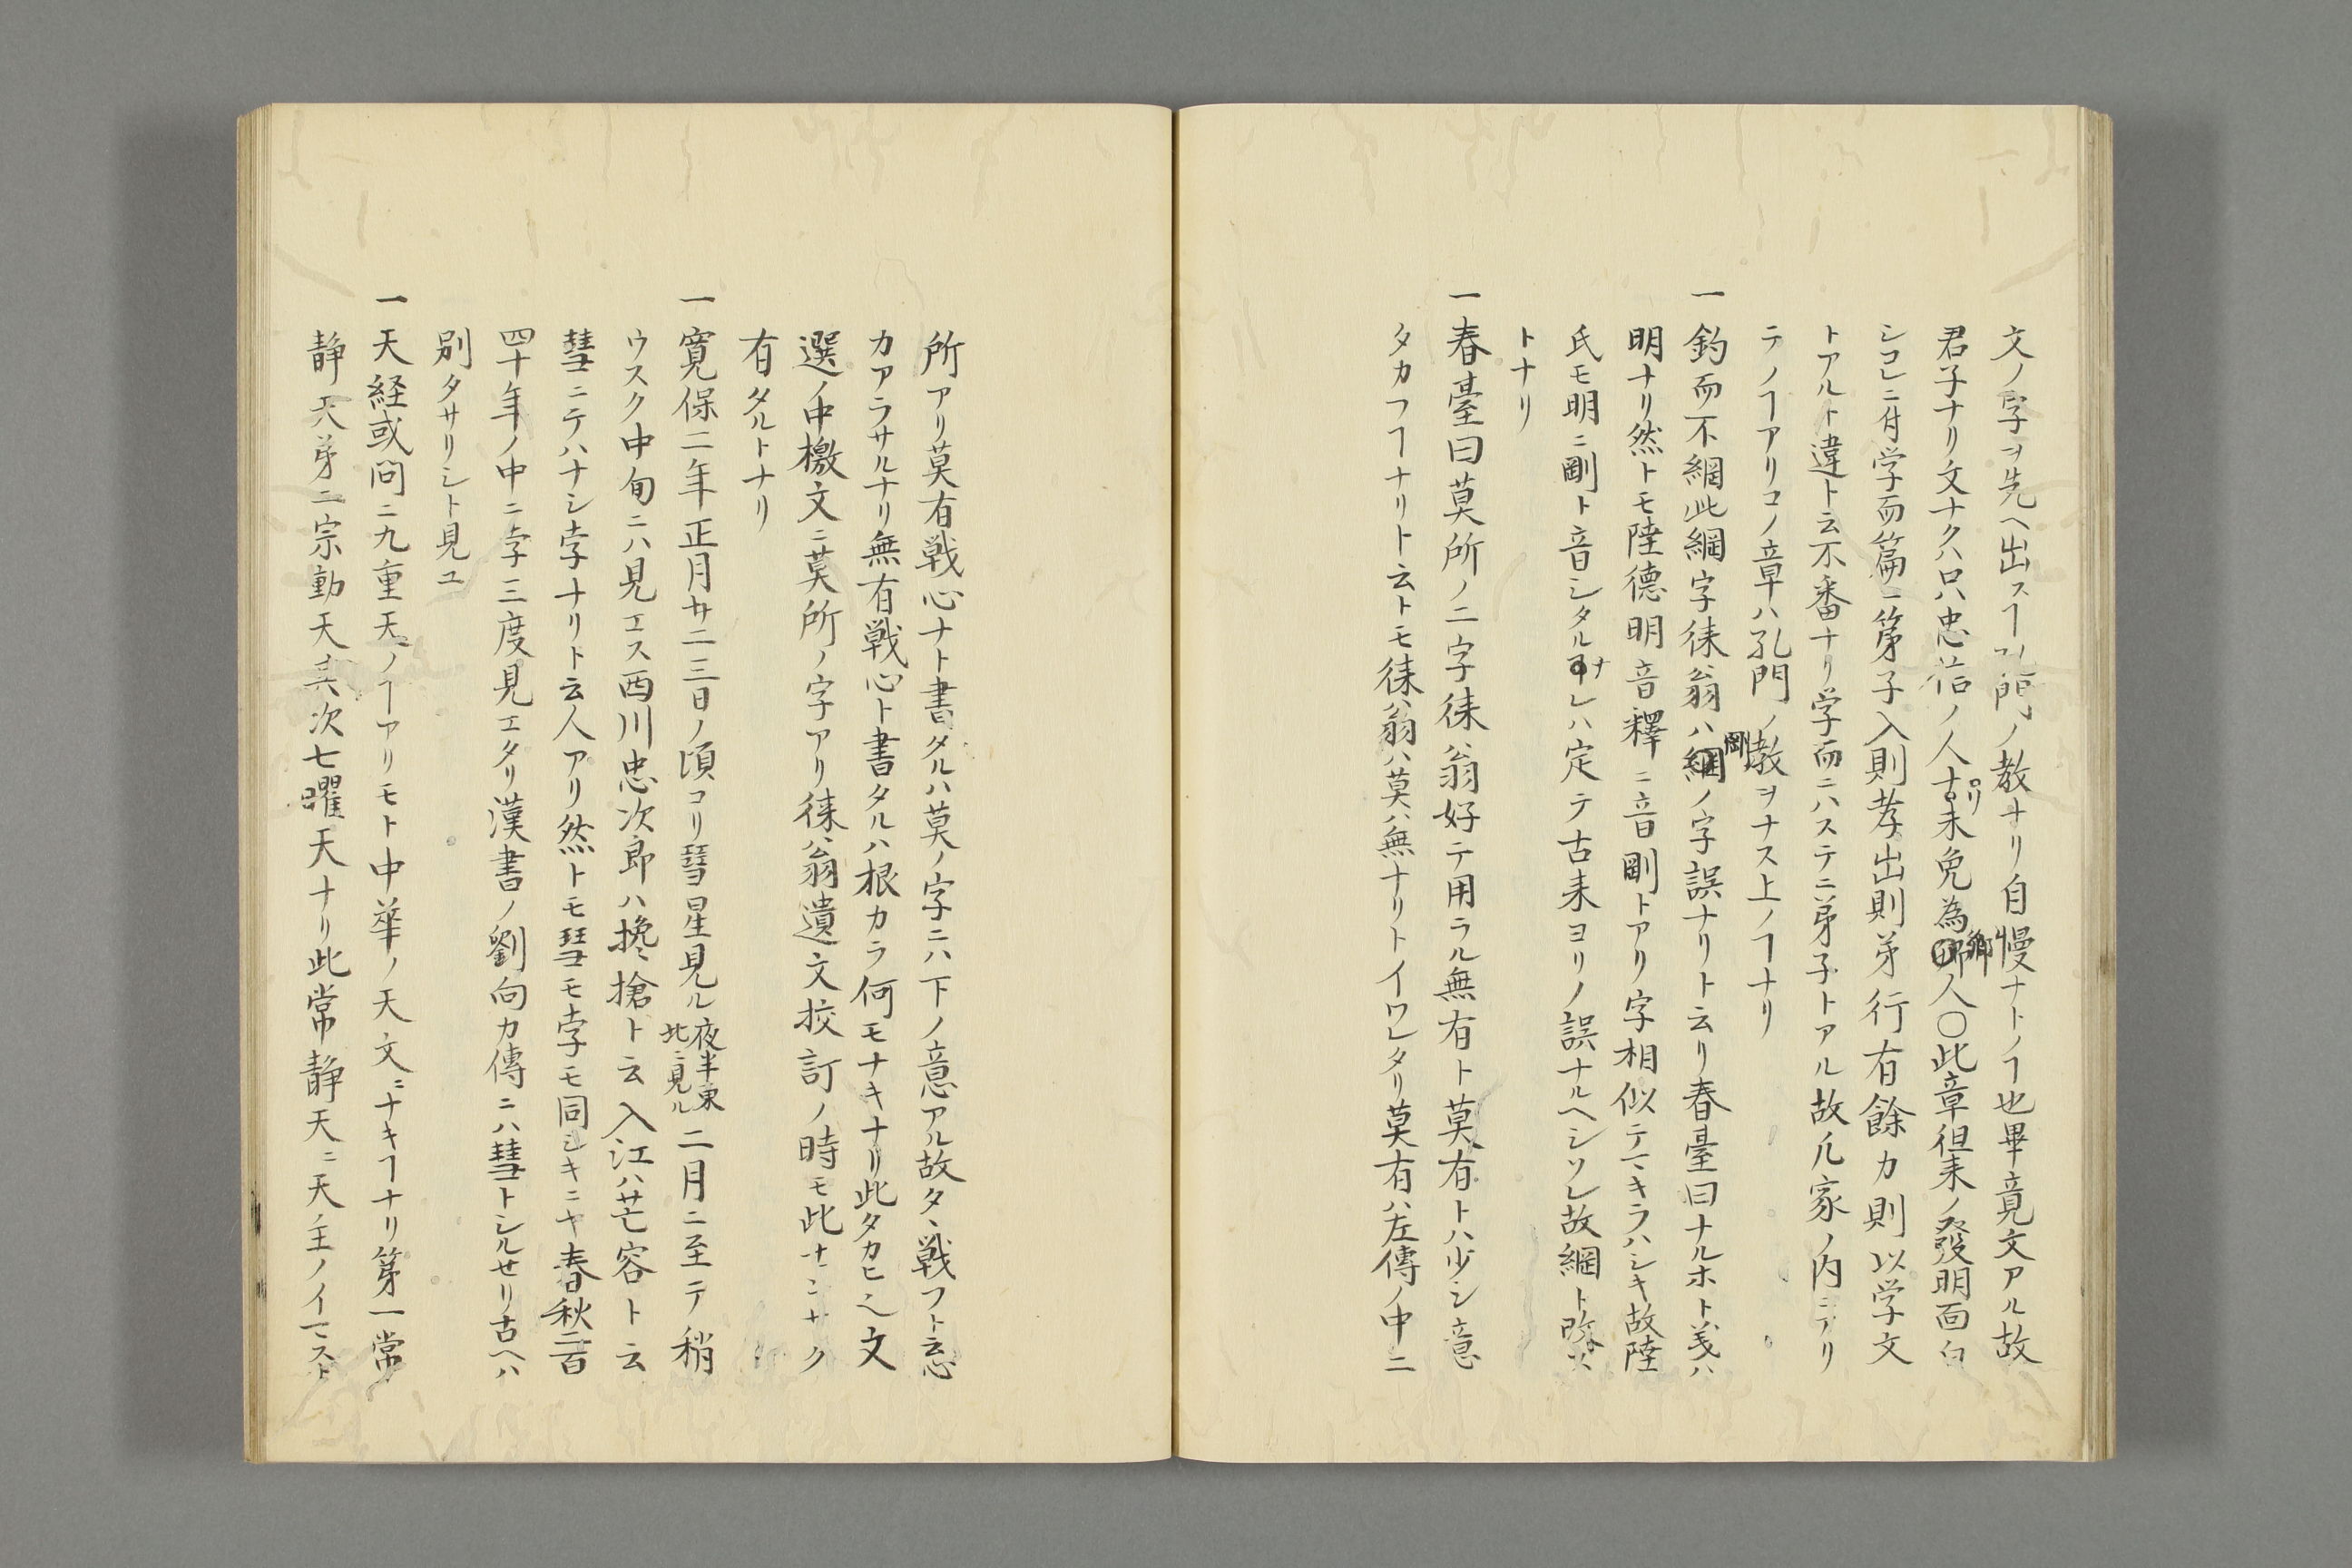 文ノ字ヲ先ヘ出スヿ孔門ノ教ナリ自慢ナトノヿ也畢竟文アル故
君子ナリ文ナクハ只忠信ノ人ナリ未免為郷人〇此章徂来ノ發明面白
シコレニ付学而篇ニ第子入則孝出則弟行有餘力則以学文
トアルト違ト云不番ナリ学而ニハステニ弟子トアル故凡家ノ内ニアリ
テノヿアリコノ章ハ孔門ノ教ヲナス上ノヿナリ
一釣而不綱此綱字徠翁ハ綱ノ字誤ナリト云リ春臺曰ナルホト義ハ
明ナリ然トモ陸徳明音釋ニ音剛トアリ字相似テマキラハシキ故陸
氏モ明ニ剛ト音シタルナレハ定テ古来ヨリノ誤ナルヘシソレ故綱ト改ス
トナリ
一春臺曰莫所ノ二字徠翁好テ用ラル無有ト莫有トハ少シ意
タカフヿナリト云トモ徠翁ハ莫ハ無ナリトイワレタリ莫有ハ左傳ノ中ニ
所アリ莫有戦心ナト書タルハ莫ノ字ニハ下ノ意アル故タヽ戦フト云心
カアラサルナリ無有戦心ト書タルハ根カラ何モナキナリ此タカヒ之文
選ノ中檄文ニ莫所ノ字アリ徠翁遺文挍訂ノ時モ此
有タルトナリ
一寛保二年正月廿二三日ノ頃ヨリ彗星見ル夜半東北ニ見ル二月ニ至テ稍
ウスク中旬ニハ見エス西川忠次郎ハ搀搶ト云入江ハ芒容ト云
彗ニテハナシ孛ナリト云人アリ然トモ彗モ孛モ同シキニヤ春秋二百
四十年ノ中ニ孛三度見エタリ漢書ノ劉向カ傳ニハ彗トシルセリ古ヘハ
別タサリシト見ユ
一天経或問ニ九重天ノヿアリモト中華ノ天文ニナキヿナリ第一常
静天第二宗動天其次七曜天ナリ此常静天ニ天主ノイマスト